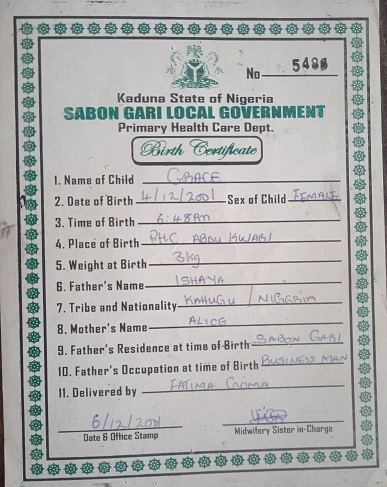 No 5486
Kaduna State of Nigeria
SABON GARI LOCAL GOVERNMENT
Primary Health Care Dept.
Birth Certificate
1. Name of Child GRACE
2. Date of Birth 4/12/2001 Sex of Child FEMALE
3. Time of Birth 6:48Am
4. Place of Birth P.H.C ABDU KWARI
5. Weight at Birth 3kg
6. Father's Name ISHAYA
7. Tribe and Nationality KAHUGU / NIGERIA
8. Mother's Name ALICE
9. Father's Residence at time of Birth SABON GARI
10. Father's Occupation at time of Birth BUSINESS MAN
11. Delivered by FATIMA
6/12/2001
Date & Office Stamp
Midwifery Sister in-Charge